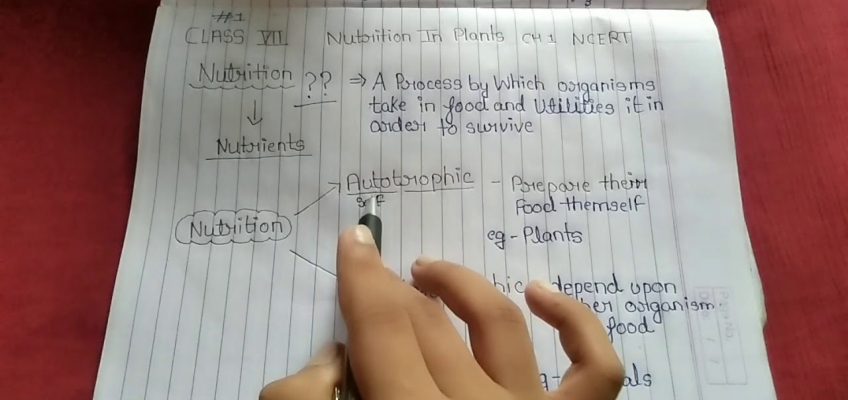 #1
CLASS VII Nutrition In Plants CH 1 NCERT
Nutrition ?? ⇒ A Process by Which organisms
take in food and Utilities it in
order to survive
↓
Nutrients
Autotrophic - Prepare their
Food themself
Nutrition
eg - Plants
depend upon
organism
food